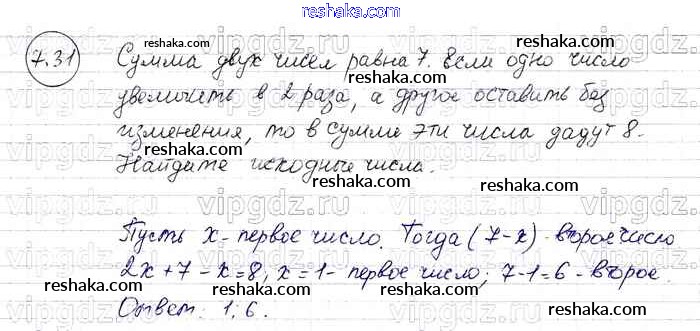 reshaka.com
7.31 Сумма двух чисел равна 7. Если одно число
reshaka.com reshaka.com
увеличить в 2 раза, а другое оставить без
reshaka.com
изменения, то в сумме эти числа дадут 8.
reshaka.com
Найдите исходные числа.
vipgdz.ru vipgdz.ru vipgdz.ru
reshaka.com
Пусть x - первое число. Тогда (7-x) - второе число
reshaka.com reshaka.com
2x+7-x=8, x=1 - первое число; 7-1=6 - второе.
reshaka.com reshaka.com
Ответ: 1; 6.
reshaka.com